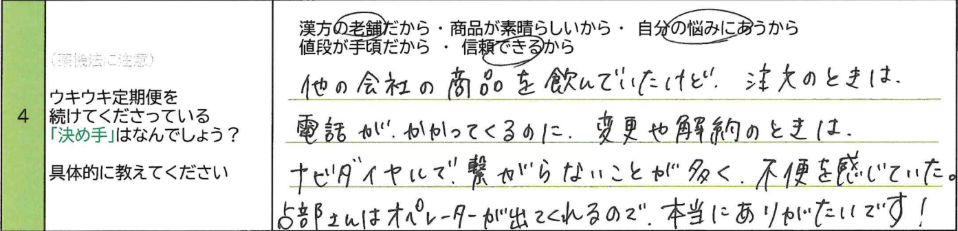 漢方の老舗だから・商品が素晴らしいから・自分の悩みにあうから
値段が手頃だから ・ 信頼できるから
(薬機法に注意)
4
ウキウキ定期便を
続けてくださっている
「決め手」はなんでしょう?
具体的に教えてください
他の会社の商品を飲んでいたけど、注文のときは、
電話が、かかってくるのに、変更や解約のときは、
ナビダイヤルで、繋がらないことが多く、不便を感じていた。
占部さんはオペレーターが出てくれるので、本当にありがたいです!